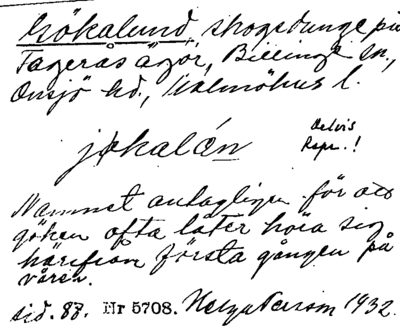 Gökalund, skogsdunge på
Fagerås ägor, Billinge sn.,
Onsjö hd., Malmöhus l.
jökalón
Delvis
Repr.!
Namnet antagligen för att
göken ofta låter höra sig
härifrån första gången på
våren.
sid. 88. Nr 5708. Helga Persson 1932.